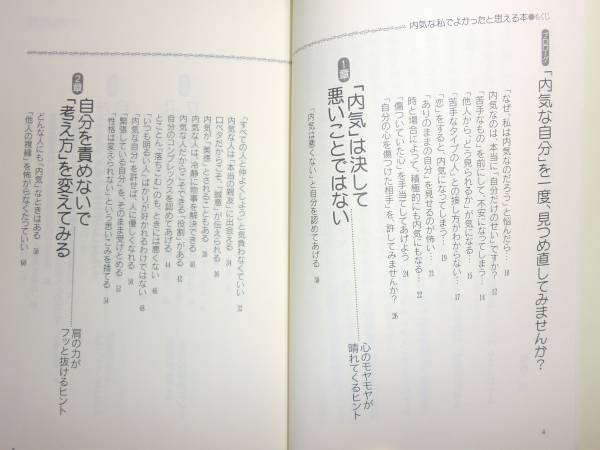 内気な私でよかったと思える本●もくじ
プロローグ
「内気な自分」を一度、見つめ直してみませんか?
「なぜ、私は内気なのだろう」と悩んだら… 10
内気なのは、本当に「自分だけのせい」ですか? 12
「苦手なもの」を前にして、不安になってしまう… 14
「他人から、どう見られるか」が気になる… 15
「苦手なタイプの人」との接し方がわからない… 17
「恋」をすると、内気になってしまう… 19
「ありのままの自分」を見せるのが怖い… 20
時と場合によって、積極的にも内気にもなる… 22
「傷ついていた心」を手当てしてあげよう 24
「自分の心を傷つけた相手」を、許してみませんか? 26
1章
「内気」は決して
悪いことではない
心のモヤモヤが
晴れてくるヒント
「内気は悪くない」と自分を認めてあげる 30
4
「すべての人と仲よくしよう」と気負わなくていい 32
内気な人は「本当の親友」に出会える 34
口ベタだからこそ、「誠意」が伝えられる 36
内気が「美徳」とされることもある 38
内気な人は、冷静に物事を解決できる
内気な人だからこそできる「役割」がある
自分のコンプレックスを認めてあげる 44
とことん「落ちこむ」のも、ときには悪くない 46
「いつも明るい人」ばかりが好かれるわけではない 48
「内気な自分」を許せば、人に優しくなれる 50
「緊張している自分」を、そのまま受けとめる
「性格は変えられない」という思いこみを捨てる 54
2章
自分を責めないで
「考え方」を変えてみる
肩の力が
フッと抜けるヒント
どんな人にも、「内気」なときはある 58
「他人の視線」を怖がらなくたっていい 60